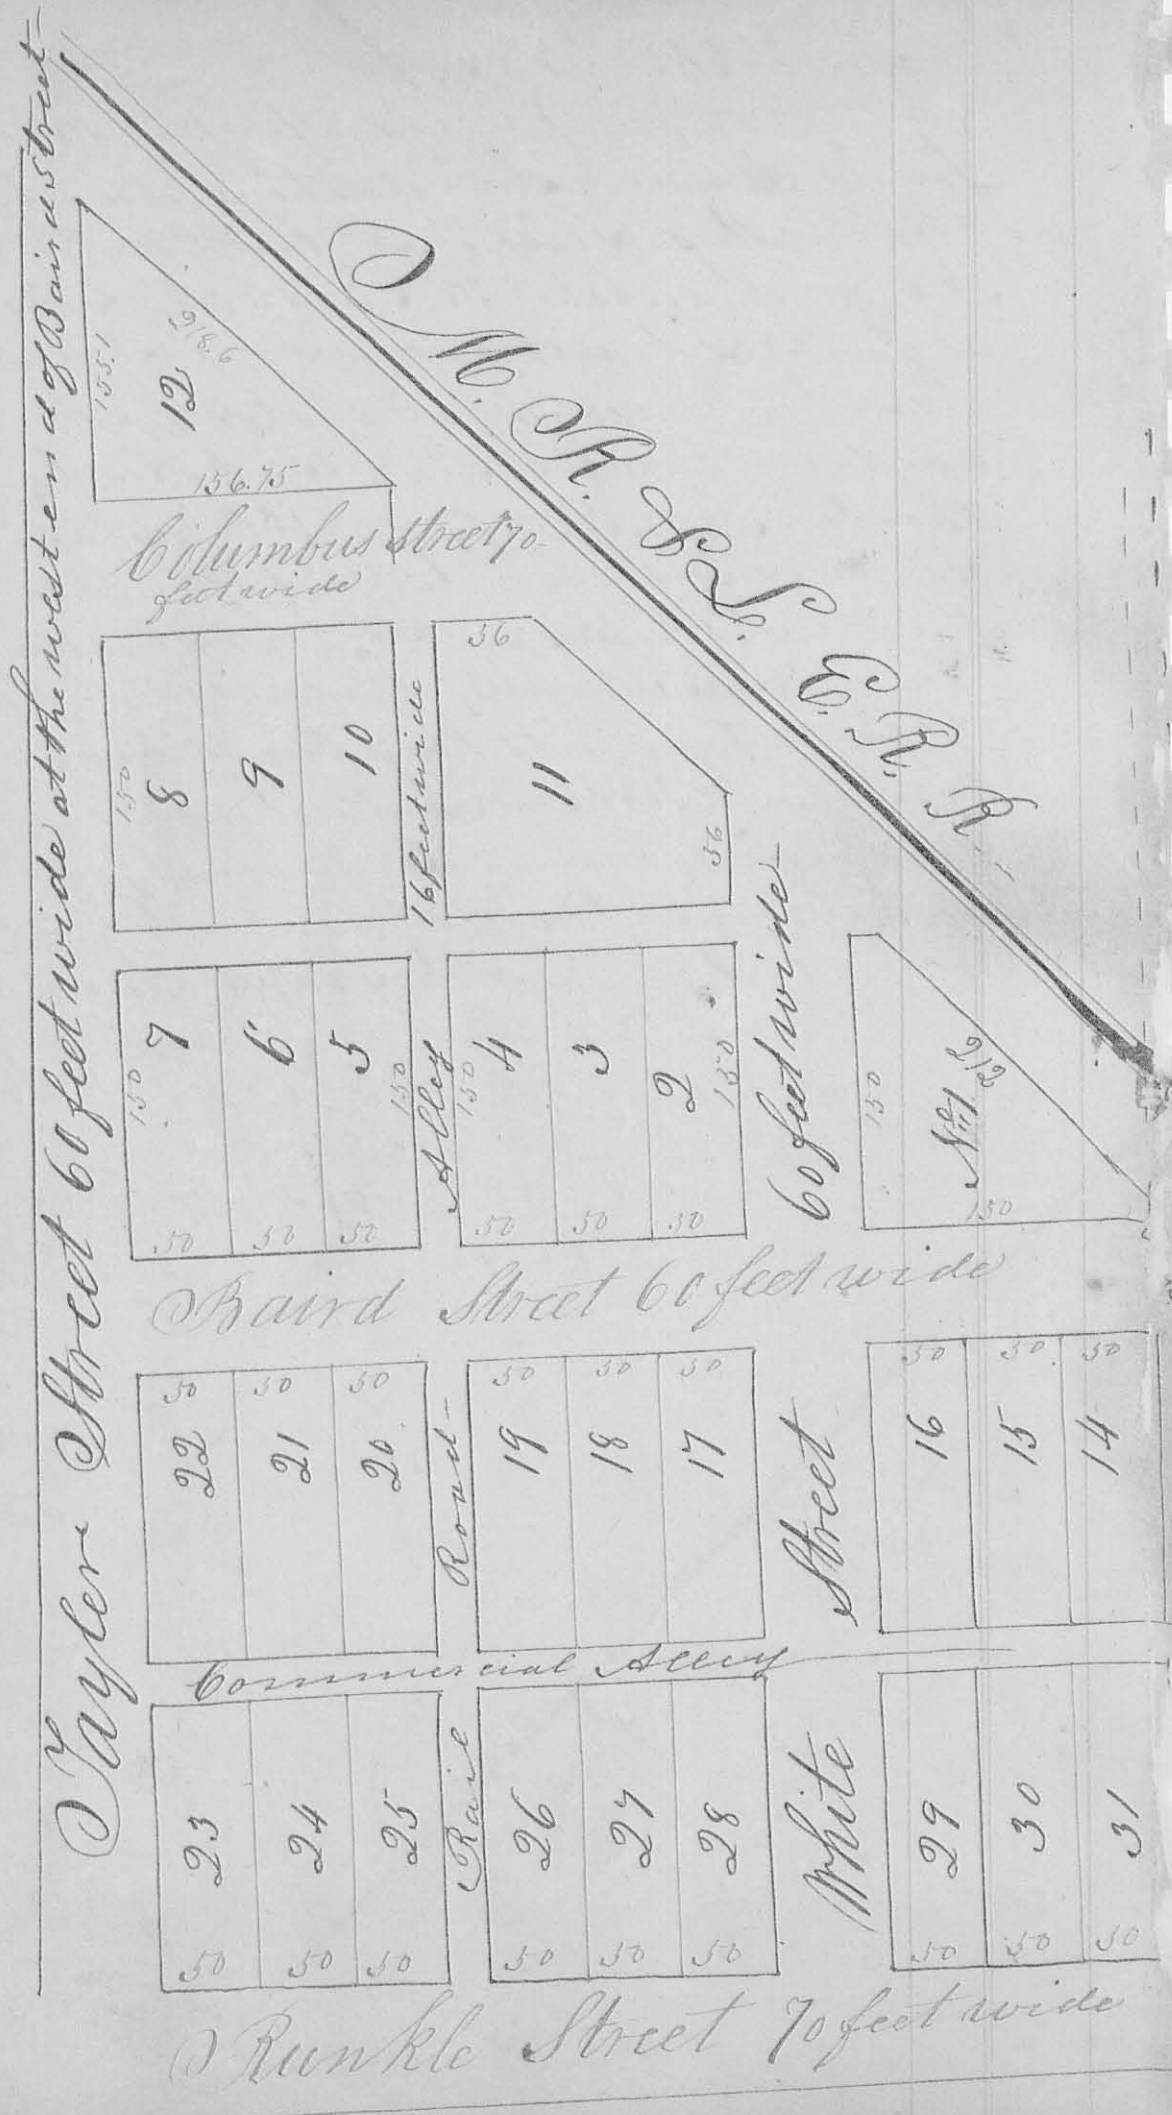 Tayler Street 60 feet wide at the west end of Baird street
155.1
12
218.6
156.75
Columbus Street 70
feet wide
M. R. & L. E. R. R.
150
8
9
10
16 feet wide
56
11
56
150
7
6
5
150
50
50
50
Alley
150
4
3
2
150
50
50
50
60 feet wide
150
No. 1
212
150
Baird Street 60 feet wide
50
50
50
22
21
20
Road
50
50
50
19
18
17
Street
50
50
50
16
15
14
Commercial Alley
23
24
25
50
50
50
Rail
26
27
28
50
50
50
White
29
30
31
50
50
50
Runkle Street 70 feet wide